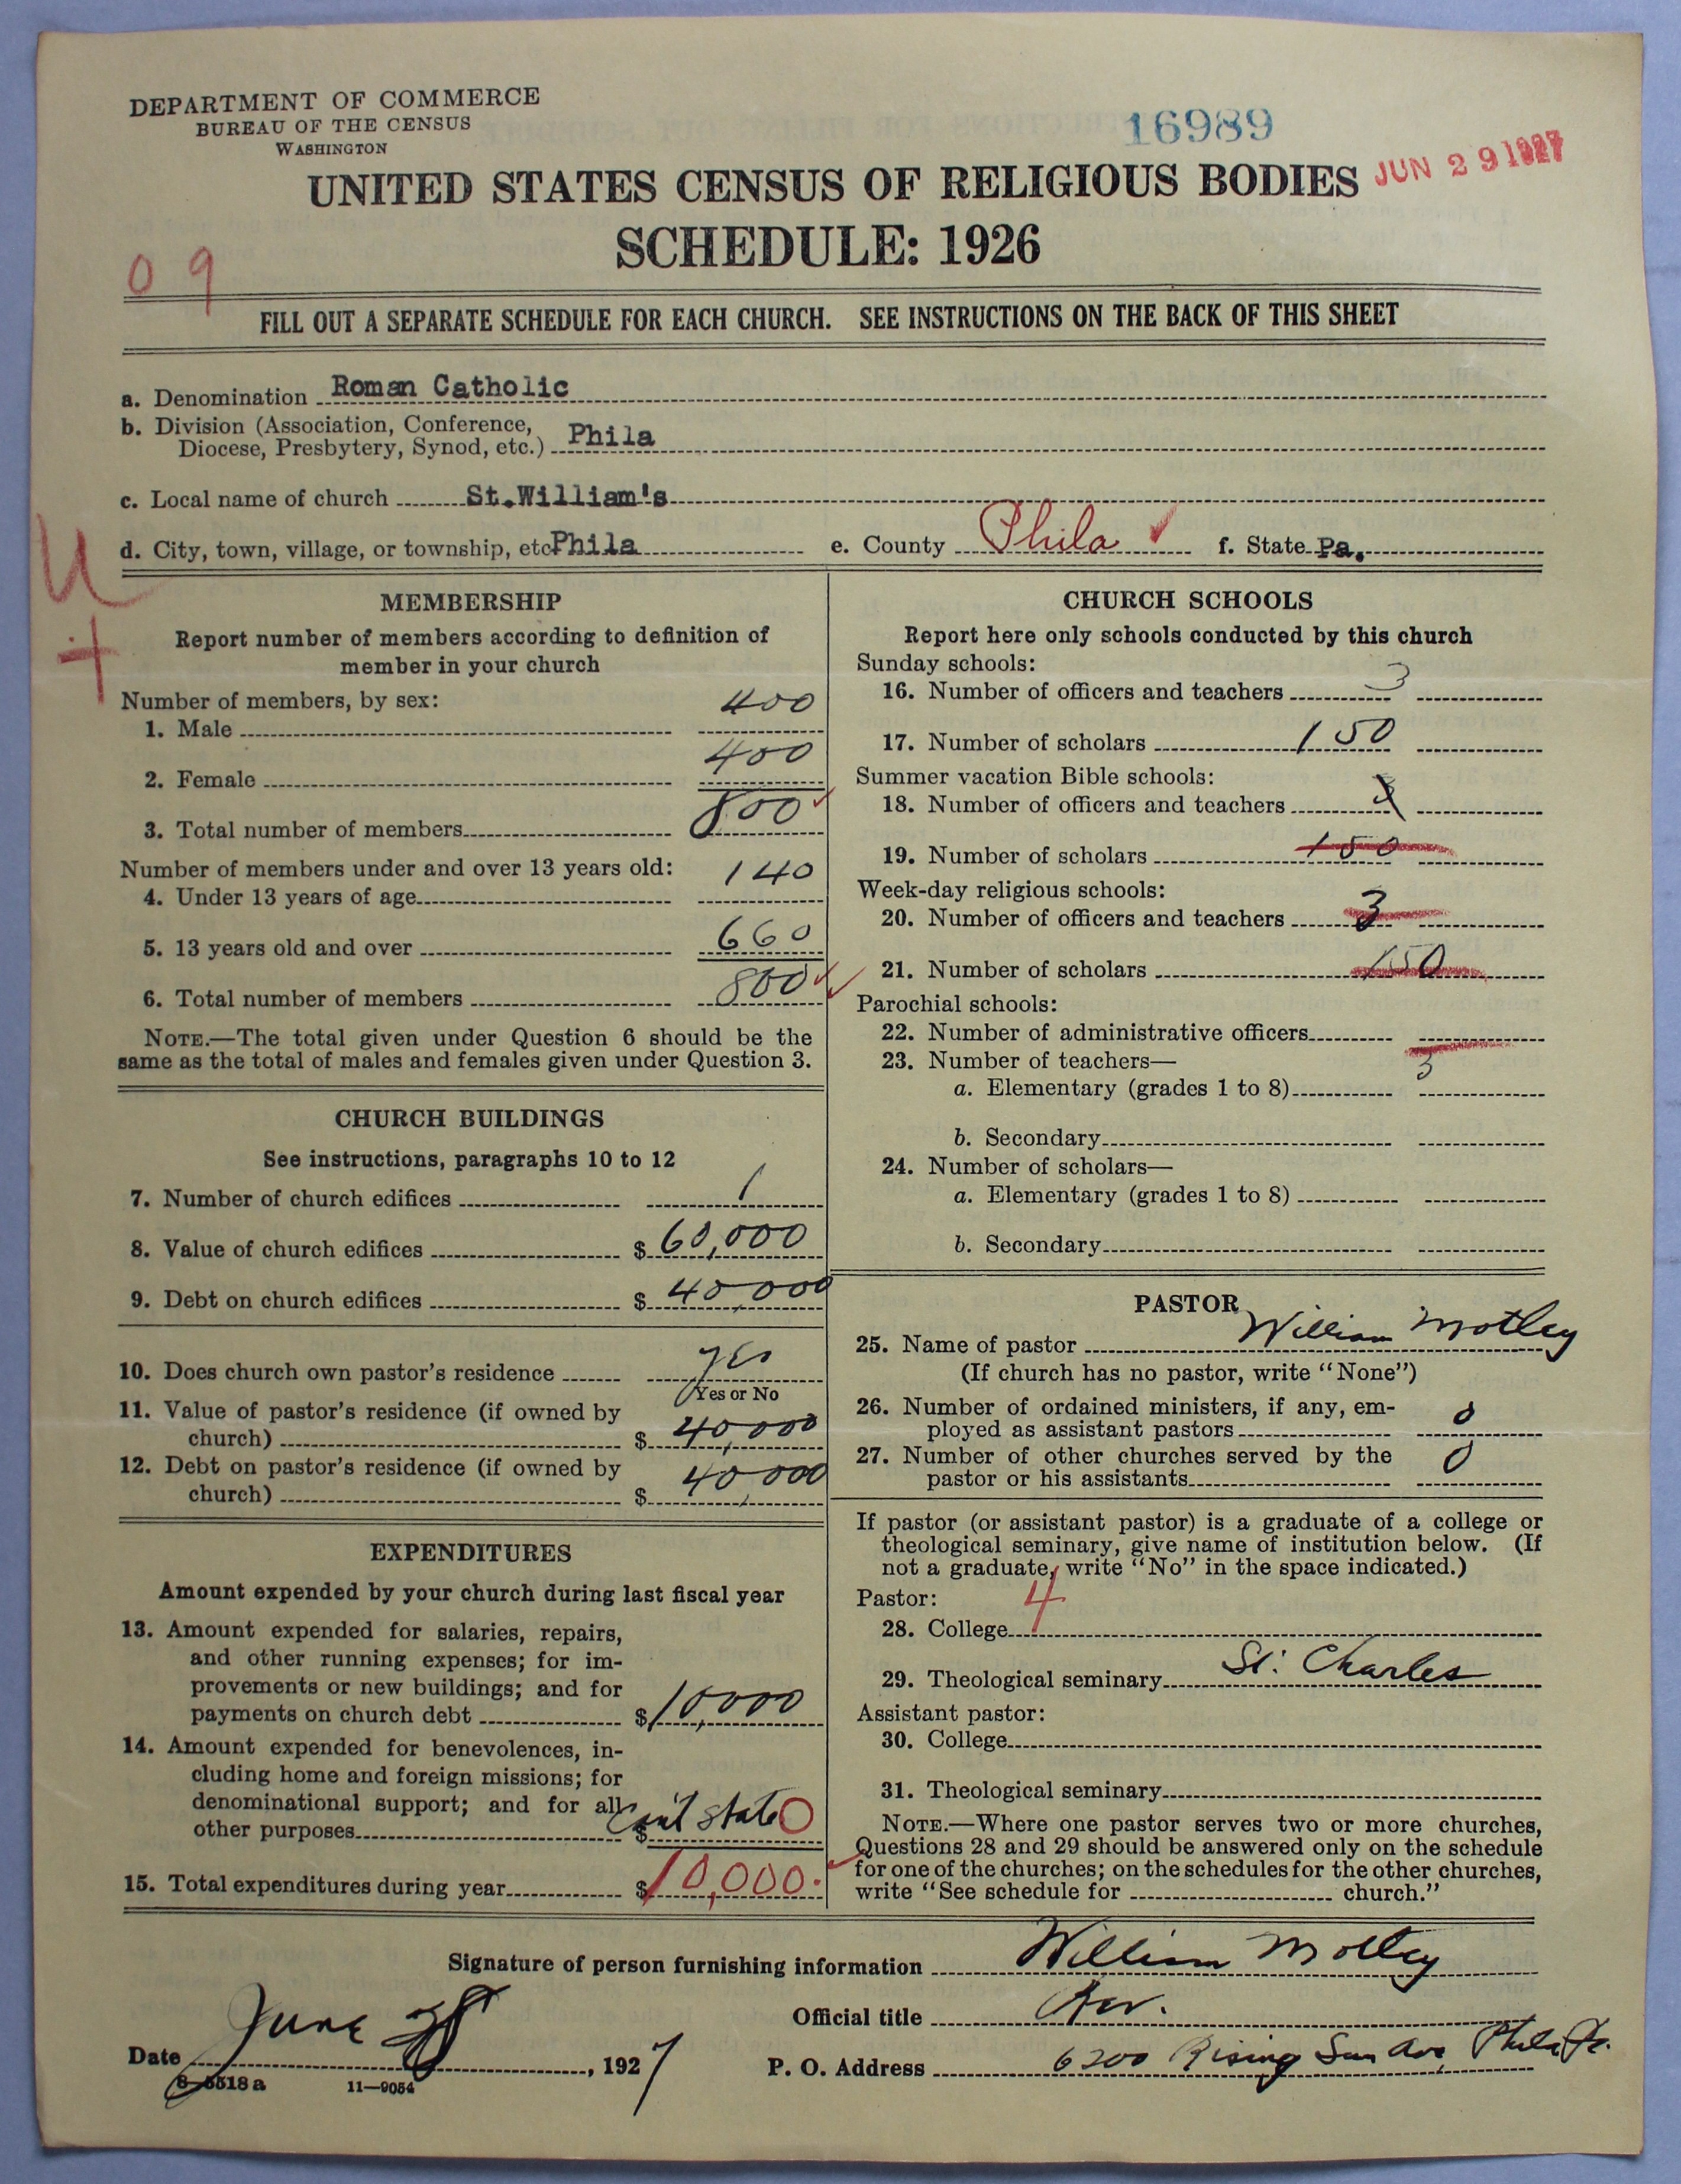 DEPARTMENT OF COMMERCE
BUREAU OF THE CENSUS
WASHINGTON
16989
JUN 29 1927
UNITED STATES CENSUS OF RELIGIOUS BODIES
SCHEDULE: 1926
09
FILL OUT A SEPARATE SCHEDULE FOR EACH CHURCH. SEE INSTRUCTIONS ON THE BACK OF THIS SHEET
a. Denomination Roman Catholic
b. Division (Association, Conference,
Diocese, Presbytery, Synod, etc.) Phila
c. Local name of church St.William's
d. City, town, village, or township, etc Phila e. County Phila ✓ f. State Pa.
U
+
MEMBERSHIP
Report number of members according to definition of
member in your church
Number of members, by sex:
1. Male 400
2. Female 400
3. Total number of members 800 ✓
Number of members under and over 13 years old:
4. Under 13 years of age 140
5. 13 years old and over 660
6. Total number of members 800 ✓
NOTE.—The total given under Question 6 should be the
same as the total of males and females given under Question 3.
CHURCH BUILDINGS
See instructions, paragraphs 10 to 12
7. Number of church edifices 1
8. Value of church edifices $ 60,000
9. Debt on church edifices $ 40,000
10. Does church own pastor's residence yes
Yes or No
11. Value of pastor's residence (if owned by
church) $ 40,000
12. Debt on pastor's residence (if owned by
church) $ 40,000
EXPENDITURES
Amount expended by your church during last fiscal year
13. Amount expended for salaries, repairs,
and other running expenses; for im-
provements or new buildings; and for
payments on church debt $ 10,000
14. Amount expended for benevolences, in-
cluding home and foreign missions; for
denominational support; and for all
other purposes $ can't state 0
15. Total expenditures during year $ 10,000.
CHURCH SCHOOLS
Report here only schools conducted by this church
Sunday schools:
16. Number of officers and teachers 3
17. Number of scholars 150
Summer vacation Bible schools:
18. Number of officers and teachers 3
19. Number of scholars 150
Week-day religious schools:
20. Number of officers and teachers 3
21. Number of scholars 150
Parochial schools:
22. Number of administrative officers
23. Number of teachers—
a. Elementary (grades 1 to 8) 3
b. Secondary
24. Number of scholars—
a. Elementary (grades 1 to 8)
b. Secondary
PASTOR
25. Name of pastor William Motley
(If church has no pastor, write "None")
26. Number of ordained ministers, if any, em-
ployed as assistant pastors 0
27. Number of other churches served by the
pastor or his assistants 0
If pastor (or assistant pastor) is a graduate of a college or
theological seminary, give name of institution below. (If
not a graduate, write "No" in the space indicated.)
Pastor: 4
28. College
29. Theological seminary St. Charles
Assistant pastor:
30. College
31. Theological seminary
NOTE.—Where one pastor serves two or more churches,
Questions 28 and 29 should be answered only on the schedule
for one of the churches; on the schedules for the other churches,
write "See schedule for church."
Signature of person furnishing information William Motley
Official title Rev.
Date June 28, 1927
P. O. Address 6200 Rising Sun Ave, Phila Pa.
8-5518 a 11—9054